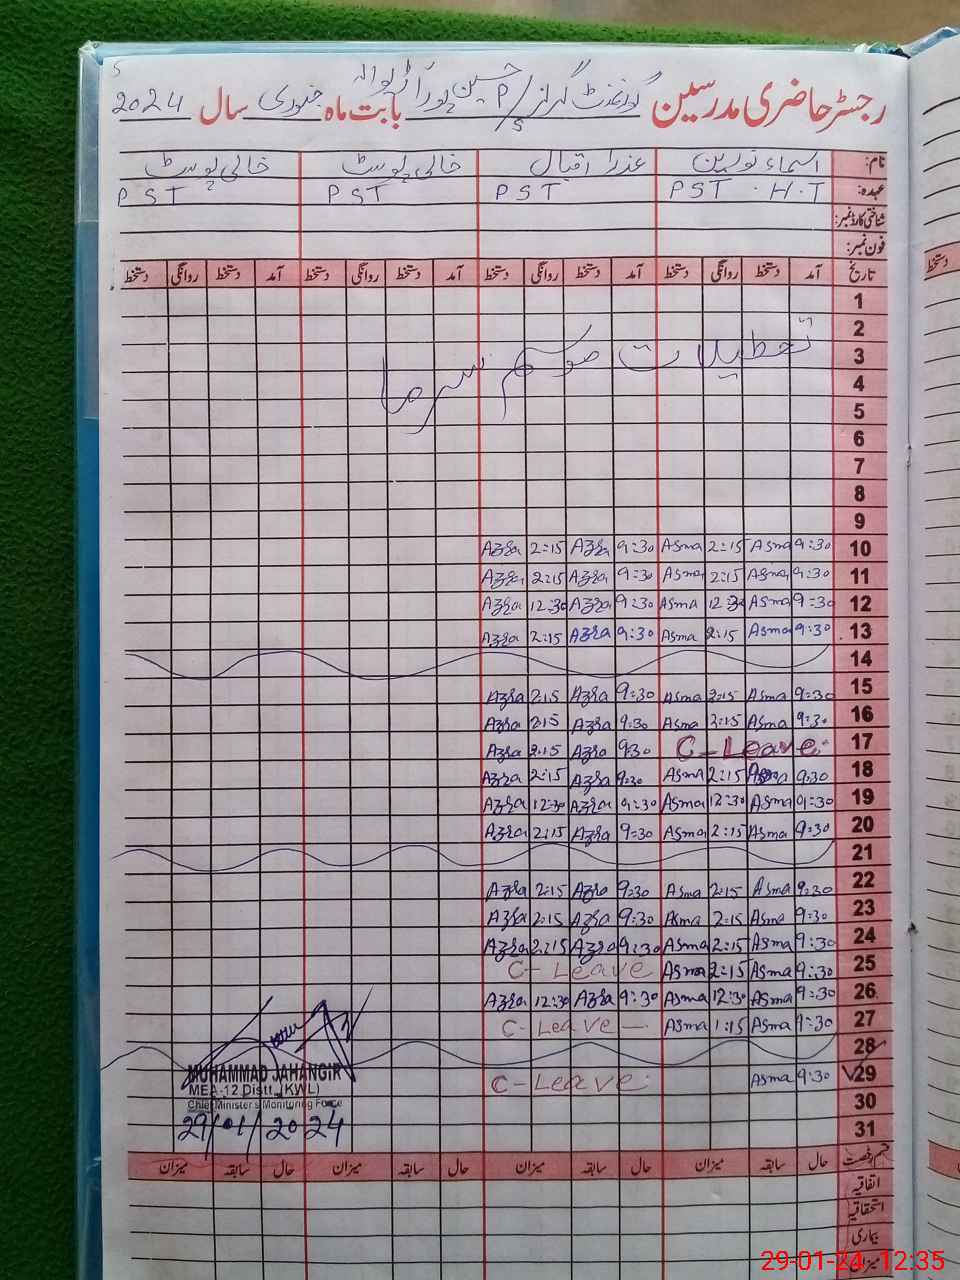 رجسٹر حاضری مدرسین گورنمنٹ گرلز P/S حسین پورہ اڈیوالہ بابت ماہ جنوری سال 2024
نام: اسماء نورین عذرا اقبال خالی پوسٹ خالی پوسٹ
عہدہ: PST . H.T PST PST PST
شناختی کارڈ نمبر:
فون نمبر:
تاریخ آمد دستخط روانگی دستخط آمد دستخط روانگی دستخط آمد دستخط روانگی دستخط آمد دستخط روانگی دستخط
1
2
تعطیلات موسم سرما
3
4
5
6
7
8
9
10 9:30 Asma 2:15 Asma 9:30 Azra 2:15 Azra
11 9:30 Asma 2:15 Asma 9:30 Azra 2:15 Azra
12 9:30 Asma 12:30 Asma 9:30 Azra 12:30 Azra
13 9:30 Asma 2:15 Asma 9:30 Azra 2:15 Azra
14
15 9:30 Asma 2:15 Asma 9:30 Azra 2:15 Azra
16 9:30 Asma 2:15 Asma 9:30 Azra 2:15 Azra
17 C-Leave 9:30 Azra 2:15 Azra
18 9:30 Asma 2:15 Asma 9:30 Azra 2:15 Azra
19 9:30 Asma 12:30 Asma 9:30 Azra 12:30 Azra
20 9:30 Asma 2:15 Asma 9:30 Azra 2:15 Azra
21
22 9:30 Asma 2:15 Asma 9:30 Azra 2:15 Azra
23 9:30 Asma 2:15 Asma 9:30 Azra 2:15 Azra
24 9:30 Asma 2:15 Asma 9:30 Azra 2:15 Azra
25 9:30 Asma 2:15 Asma C-Leave
26 9:30 Asma 12:30 Asma 9:30 Azra 12:30 Azra
27 9:30 Asma 1:15 Asma C-Leave
28
29 9:30 Asma C-Leave
30
31
MUHAMMAD JAHANGIR
MEA-12 Distt. (KWL)
Chief Minister's Monitoring Force
29/01/2024
قسم رخصت حال سابقہ میزان حال سابقہ میزان حال سابقہ میزان حال سابقہ میزان
اتفاقیہ
استحقاقیہ
بیماری
میزان
دستخط
29-01-24 12:35